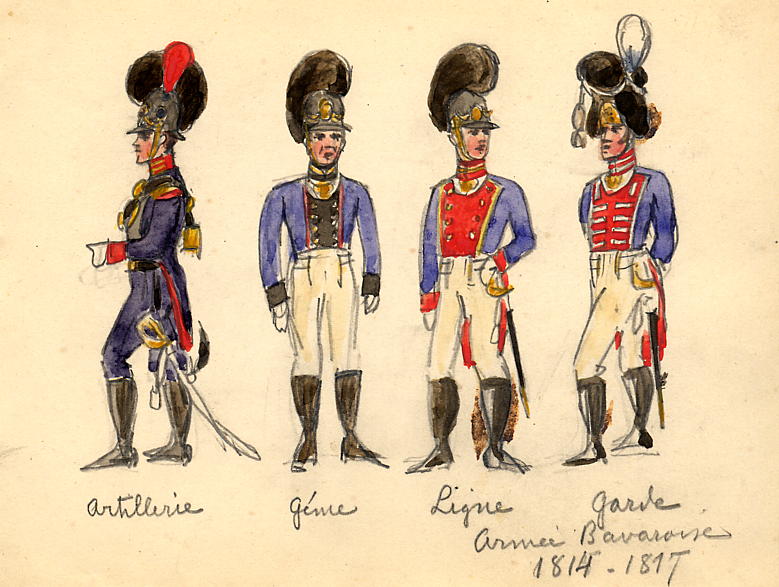 artillerie Génie Ligne Garde
Armée Bavaroise
1814-1817